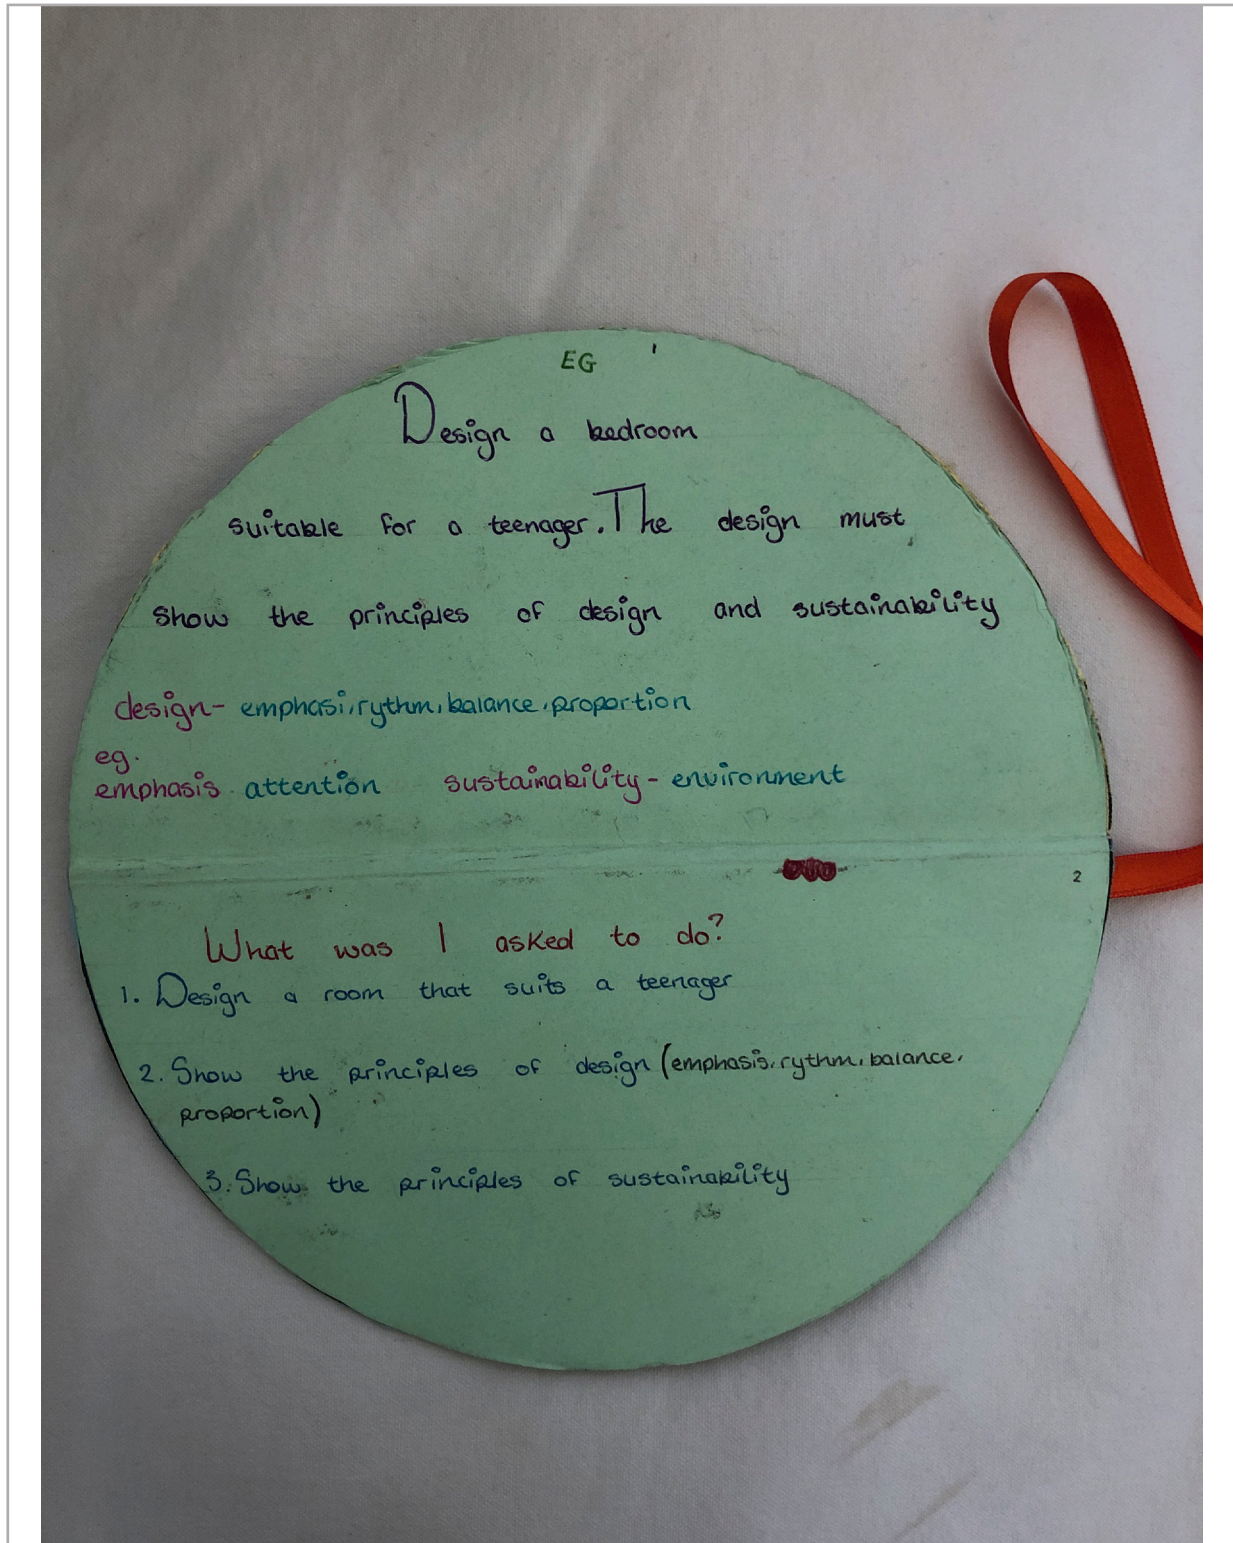 EG 1
Design a bedroom
suitable for a teenager. The design must
show the principles of design and sustainability
design- emphasi, rythm, balance, proportion
eg.
emphasis attention sustainability - environment
2
What was I asked to do?
1. Design a room that suits a teenager
2. Show the principles of design (emphasis, rythm, balance,
proportion)
3. Show the principles of sustainability